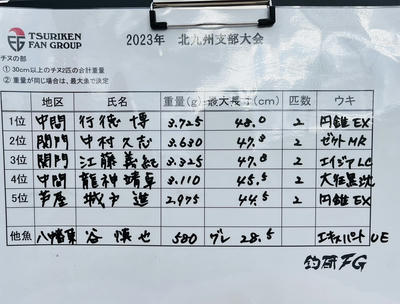 TSURIKEN
FAN GROUP
2023年 北九州支部大会
チヌの部
① 30cm以上のチヌ2匹の合計重量
② 重量が同じ場合は、最大魚で決定
地区 氏名 重量(g) 最大長寸(cm) 匹数 ウキ
1位 中間 行徳 博 3.725 48.0 2 円錐EX
2位 関門 中村久志 3.630 47.8 2 ゼクトMR
3位 関門 江藤義紀 3.325 47.8 2 エイジアLC
4位 中間 龍神靖卓 3.110 45.5 2 大知黒沈
5位 芦屋 城戸 進 2.975 44.5 2 円錐EX
他魚 八幡東 谷 慎也 580 グレ 28.5 エキスパートUE
釣研FG